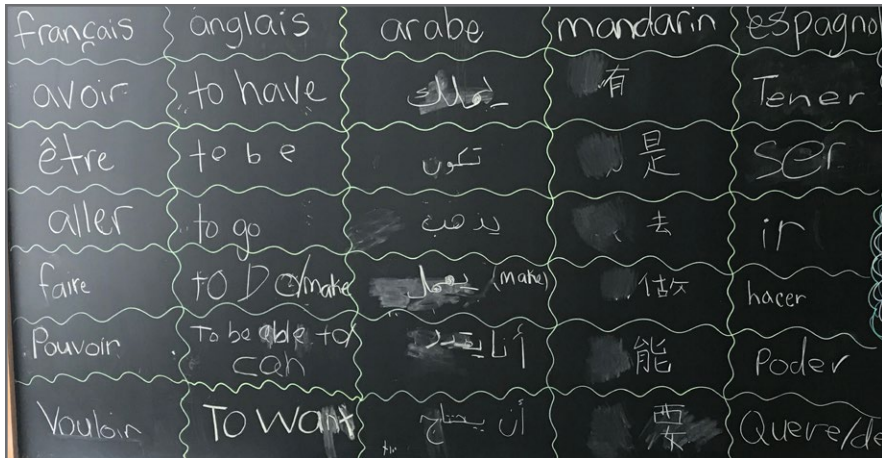 français anglais arabe mandarin espagnol
avoir to have يملك 有 Tener
être to be تكون 是 ser
aller to go يذهب 去 ir
faire to Do/make يعمل (make) 做 hacer
Pouvoir To be able to/ أنا يقدر 能 Poder
can
Vouloir To Want أن يحتاج 要 Quere/de